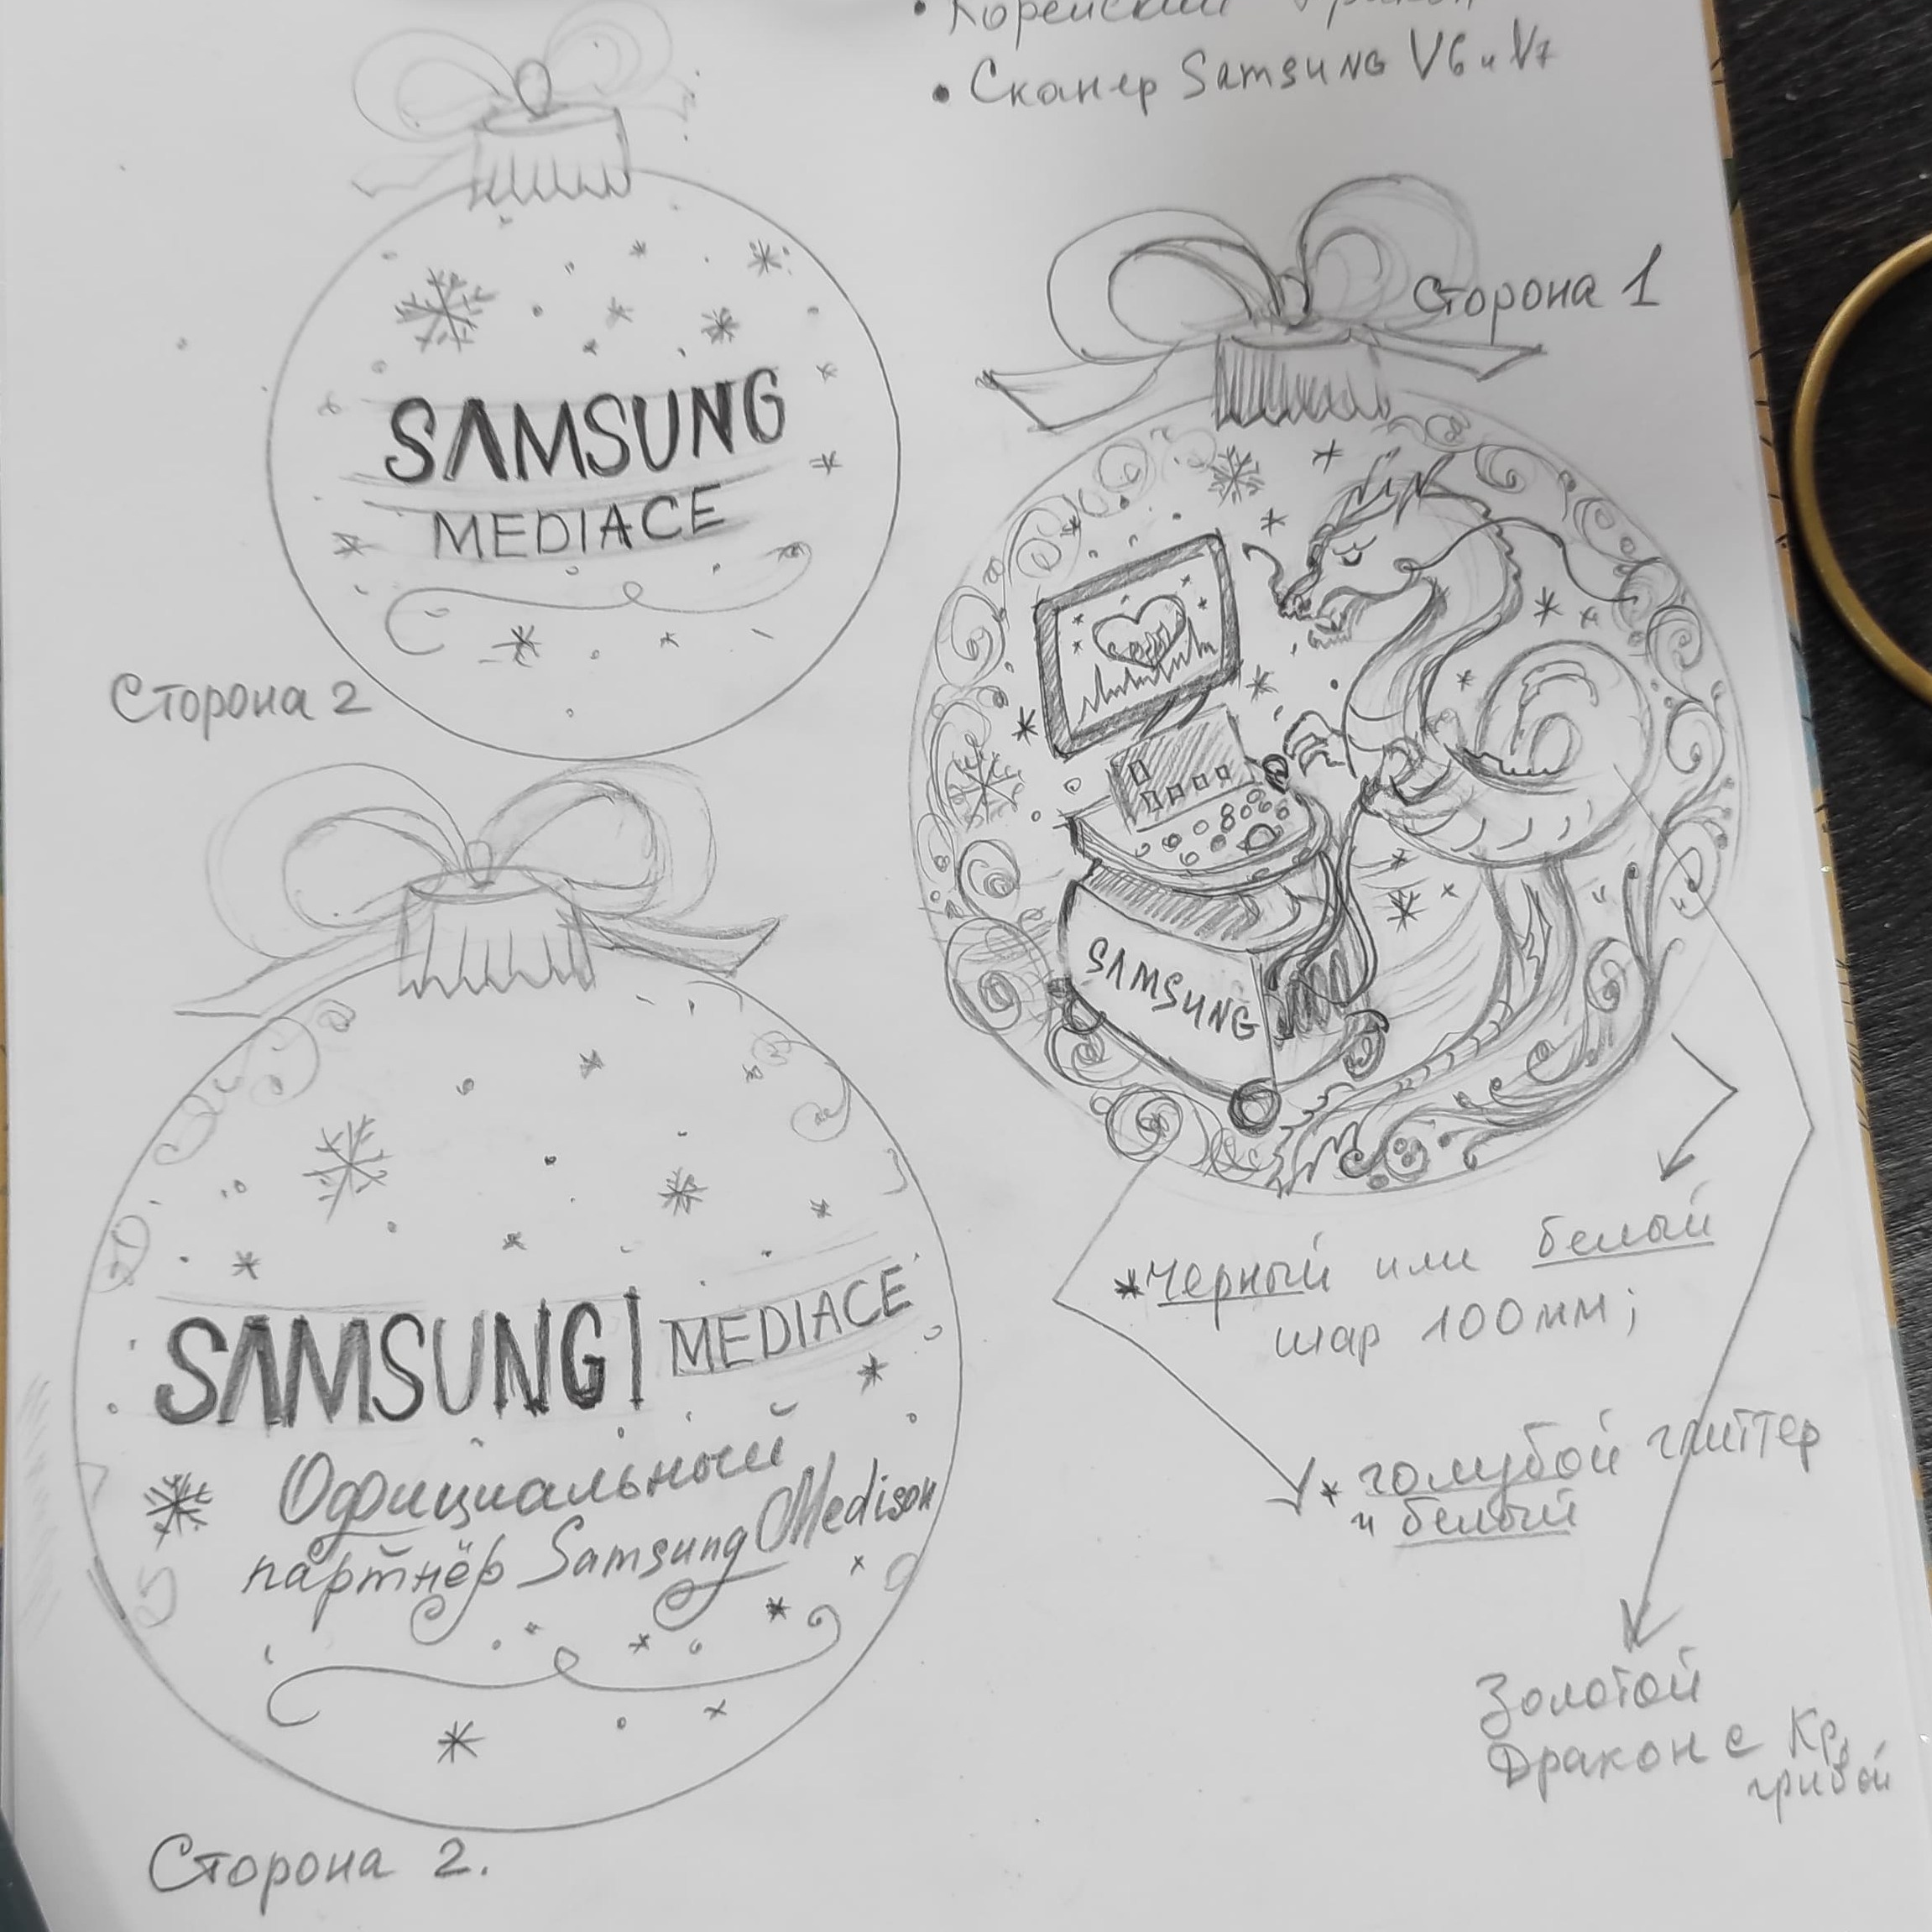 • Корейский Дракон
• Сканер Samsung V6 и V7
SAMSUNG
MEDIACE
Сторона 2
Сторона 1
SAMSUNG
*черный или белый
шар 100мм;
* голубой глиттер
и белый
Золотой
Дракон с Кр.
гривой
SAMSUNG | MEDIACE
Официальный
партнёр Samsung Medison
Сторона 2.